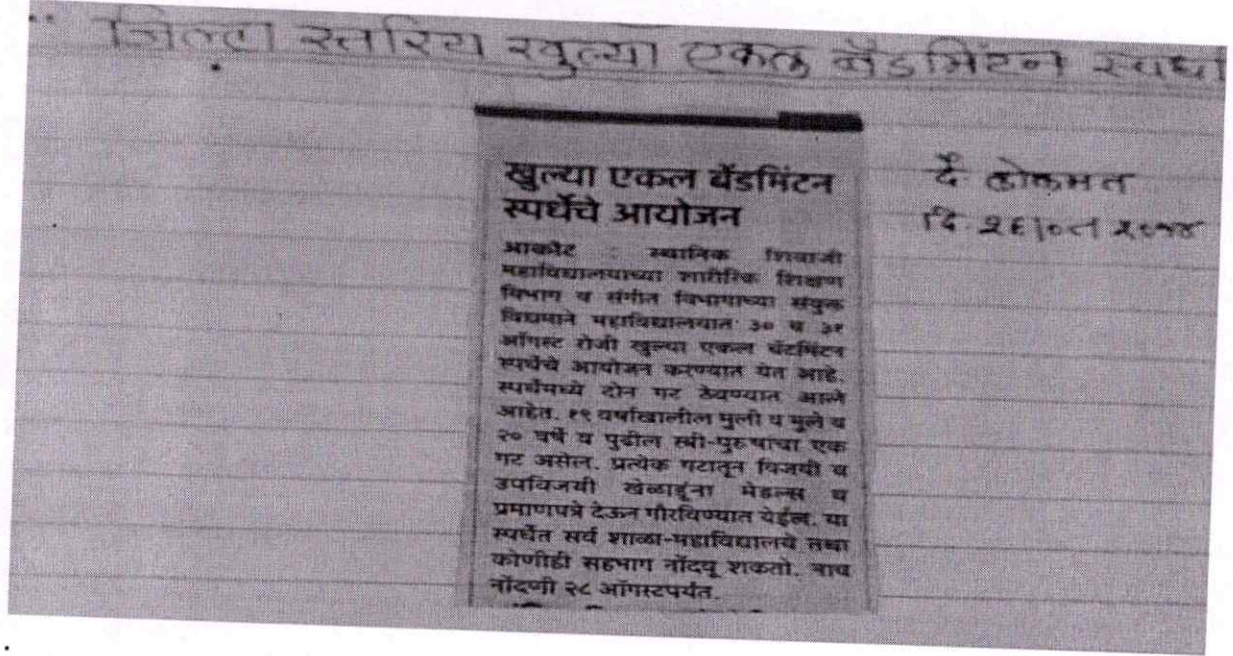 " जिल्हा स्तरिय खुल्या एकल बॅडमिंटन स्पर्धा
खुल्या एकल बॅडमिंटन
स्पर्धेचे आयोजन
दै लोकमत
दि २६|०८ २०१४
आकोट : स्थानिक शिवाजी
महाविद्यालयाच्या शारीरिक शिक्षण
विभाग व संगीत विभागाच्या संयुक्त
विद्यमाने महाविद्यालयात ३० व ३१
ऑगस्ट रोजी खुल्या एकल बॅटमिंटन
स्पर्धेचे आयोजन करण्यात येत आहे.
स्पर्धेमध्ये दोन गट ठेवण्यात आले
आहेत. १९ वर्षाखालील मुली व मुले व
२० वर्षे व पुढील स्त्री-पुरुषांचा एक
गट असेल. प्रत्येक गटातून विजयी व
उपविजयी खेळाडूंना मेडल्स व
प्रमाणपत्रे देऊन गौरविण्यात येईल. या
स्पर्धेत सर्व शाळा-महाविद्यालये तथा
कोणीही सहभाग नोंदवू शकतो. नाव
नोंदणी २८ ऑगस्टपर्यंत.